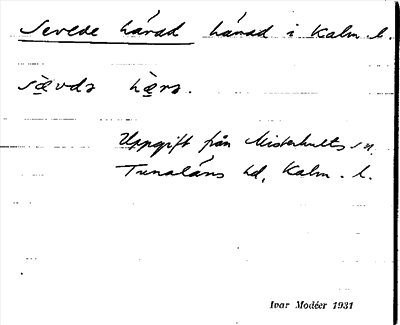 Sevede härad härad i Kalm. l.
sæ̀vdə hæ̀rə.
Uppgift från Misterhults sn,
Tunaläns hd, Kalm. l.
Ivar Modéer 1931